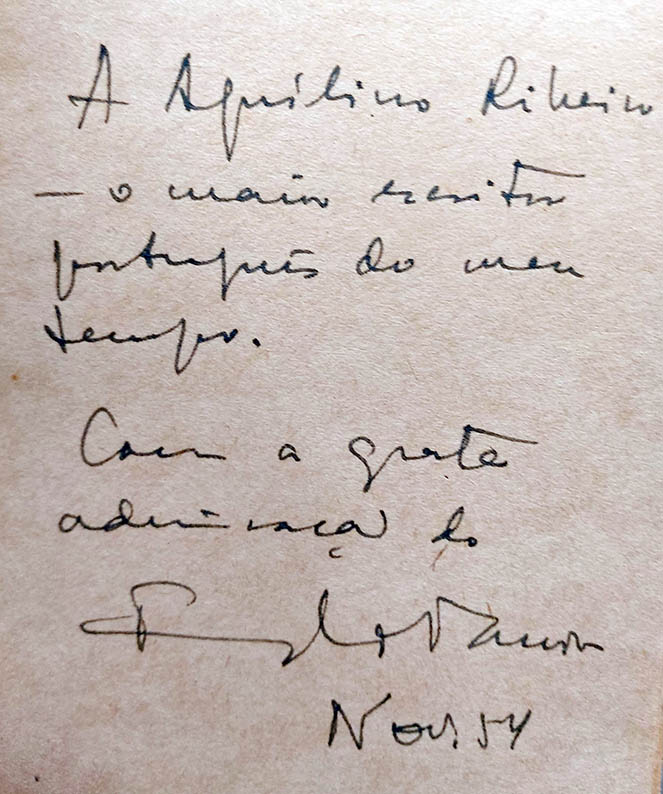 A Aquilino Ribeiro
— o maior escritor
português do meu
tempo.
Com a grata
admiração do
Nov. 54